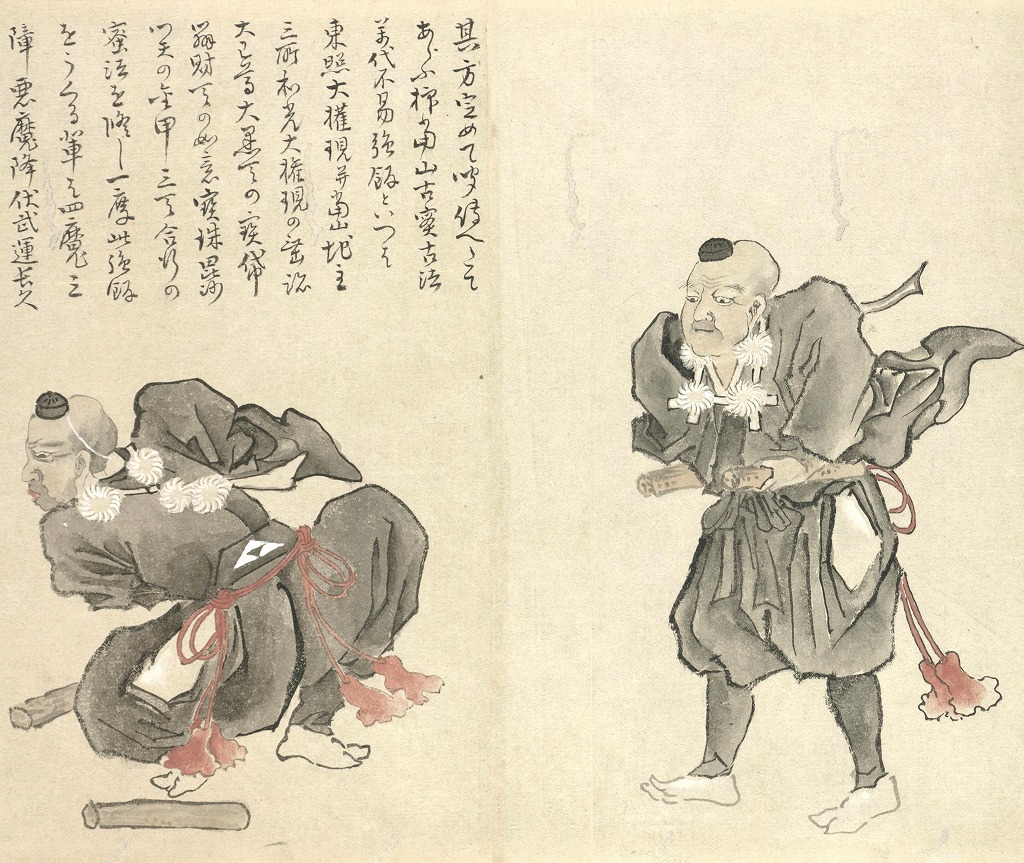 其方定めて聞傳へたて
あらふ抑當山古実古法
萬代不易強飯といつは
東照大權現并當山地主
三所和光大權現の
大己尊大黒天の寶袋
辨財天の如意寶珠毘沙
門天の金甲三天合行の
蜜法を修し一度此強飯
をうくる輩は四魔三
障悪魔降伏武運長久